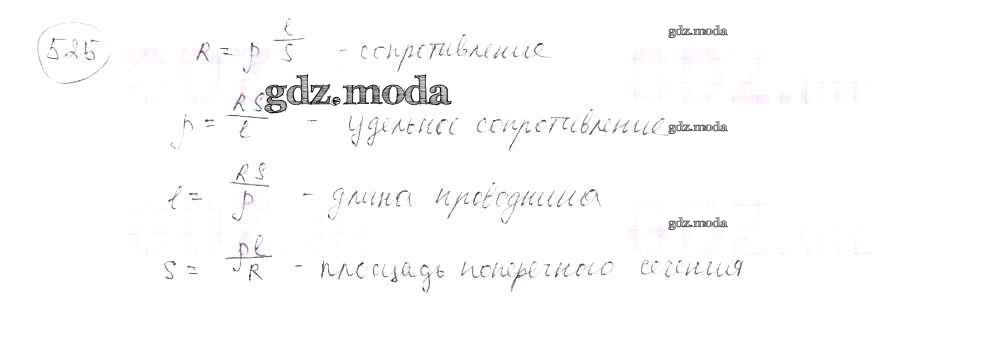 525
R = ρ l/S - сопротивление
gdz.moda
gdz.moda
ρ = RS/l - удельное сопротивление
gdz.moda
l = RS/ρ - длина проводника
gdz.moda
S = ρl/R - площадь поперечного сечения